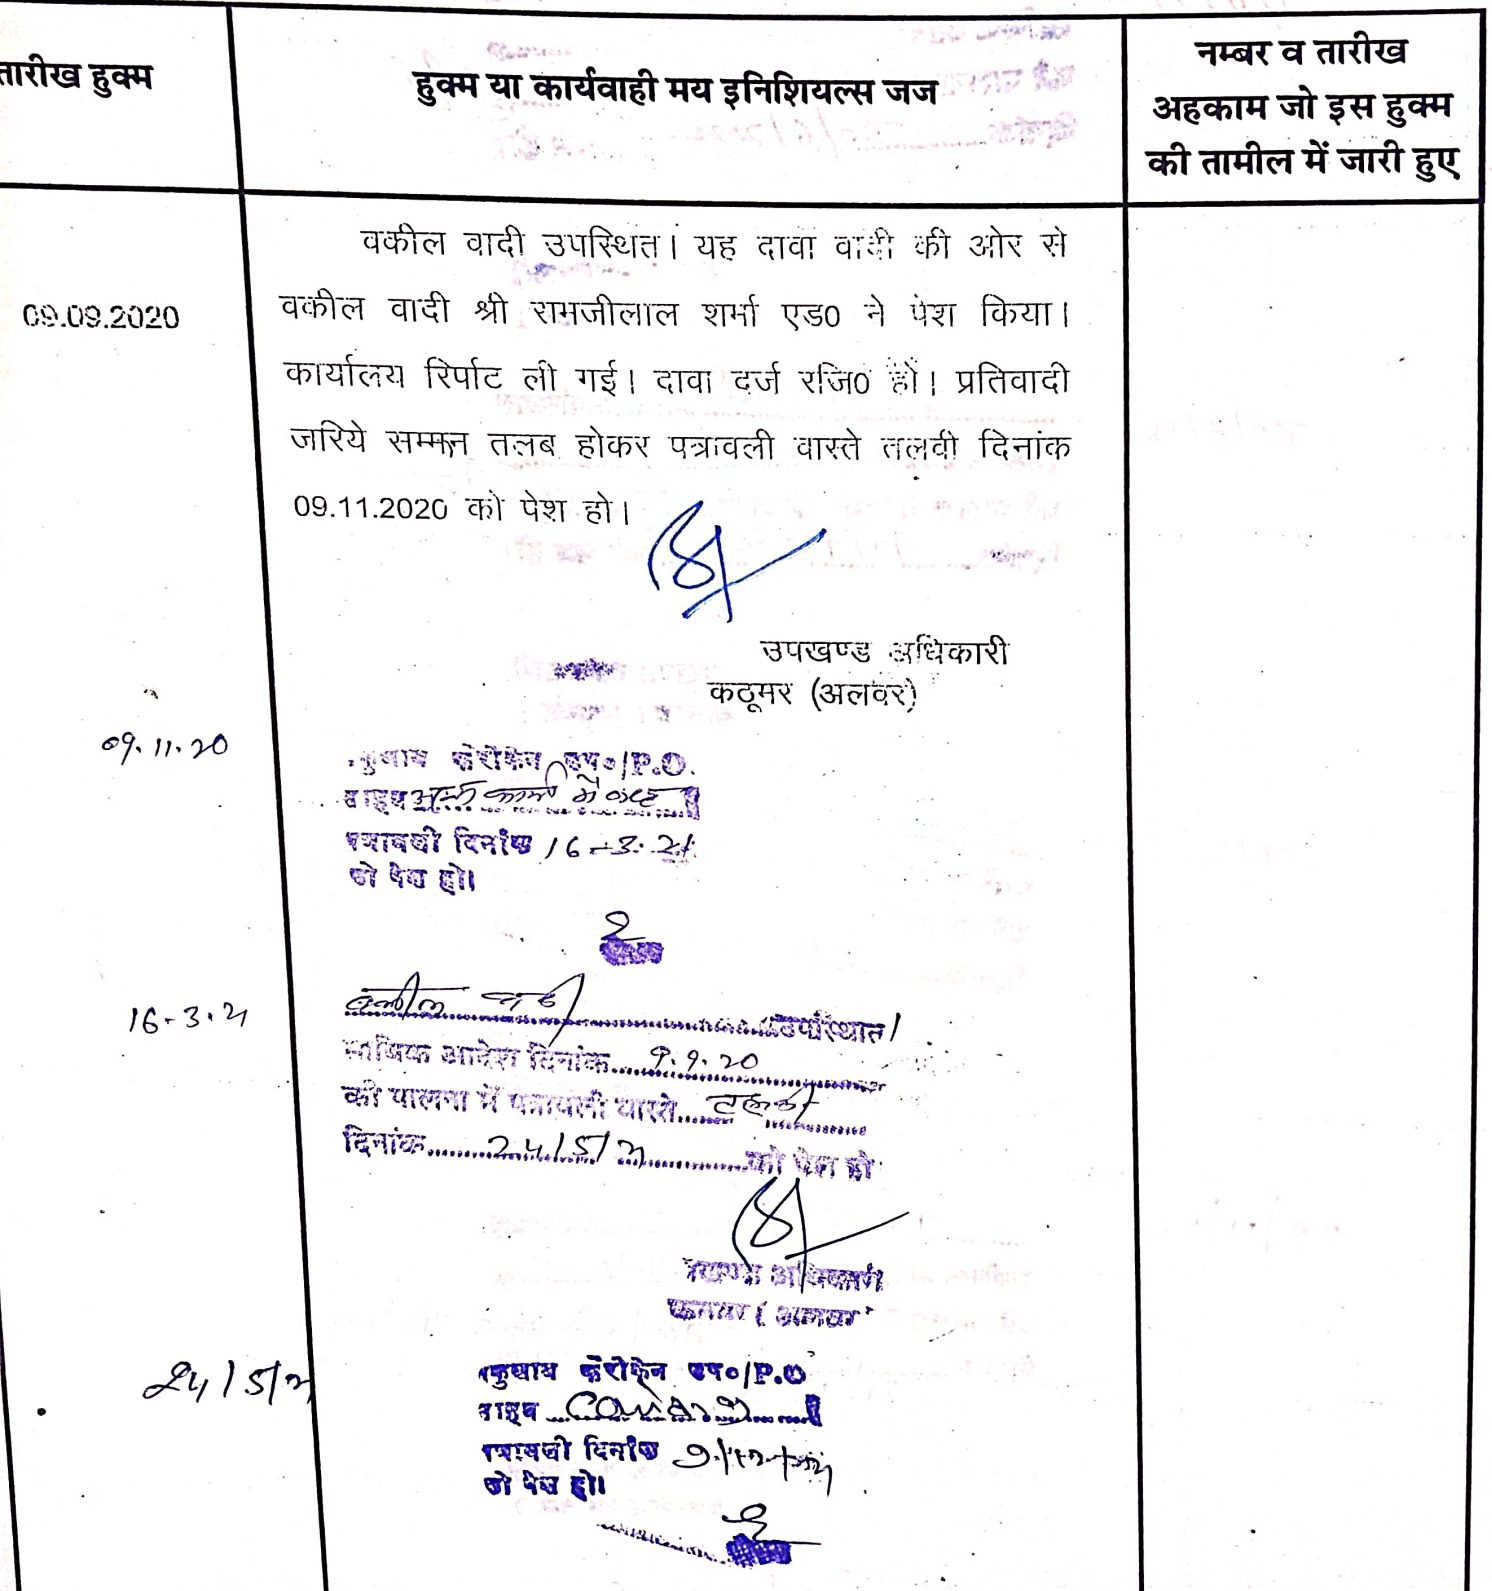 तारीख हुक्म
हुक्म या कार्यवाही मय इनिशियल्स जज
नम्बर व तारीख
अहकाम जो इस हुक्म
की तामील में जारी हुए
09.09.2020
वकील वादी उपस्थित। यह दावा वादी की ओर से
वकील वादी श्री रामजीलाल शर्मा एड0 ने पेश किया।
कार्यालय रिर्पाट ली गई। दावा दर्ज रजि0 हो। प्रतिवादी
जरिये सम्मन तलब होकर पत्रावली वास्ते तलवी दिनांक
09.11.2020 को पेश हो।
उपखण्ड अधिकारी
कठूमर (अलवर)
09.11.20
/P.O.
साहब
पत्रावली दिनांक 16-3-21
को पेश हो।
16-3-21
वकील वादी उपस्थित।
आदेश दिनांक 9.9.20
की पालना में पत्रावली वास्ते तलवी
दिनांक 24/5/21 को पेश हो
अधिकारी
24/5/21
/P.O
साहब
पत्रावली दिनांक
को पेश हो।